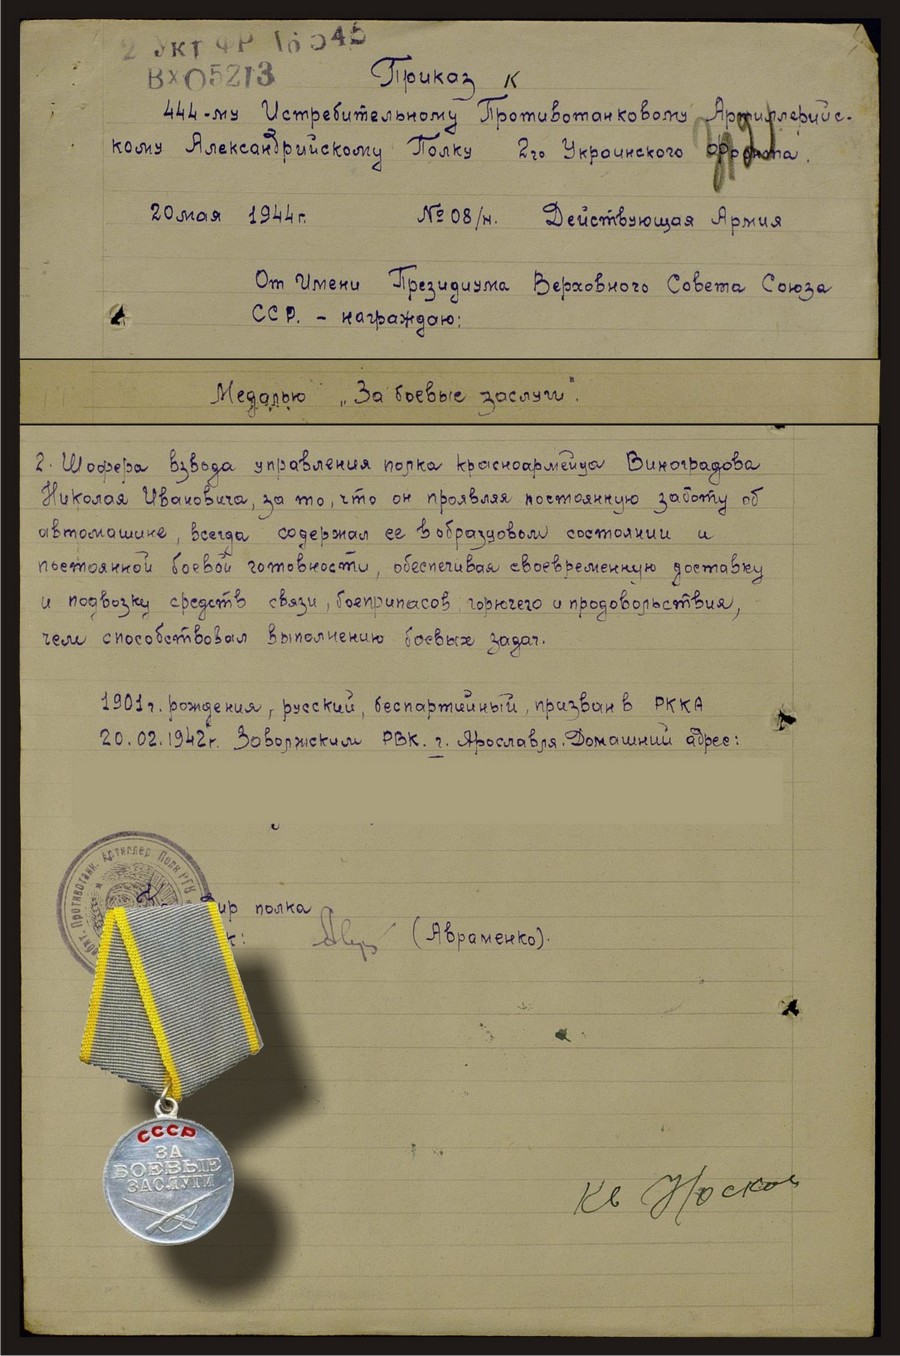 2 Укт ФР
Вх 05213
Приказ к
444-му Истребительному Противотанковому Артиллерийс-
кому Александрийскому Полку 2го Украинского Фронта.
20 мая 1944г. № 08/н. Действующая Армия
От Имени Президиума Верховного Совета Союза
ССР. - награждаю:
Медалью „За боевые заслуги".
2. Шофера взвода управления полка красноармейца Виноградова
Николая Ивановича, за то, что он проявляя постоянную заботу об
автомашине, всегда содержал ее в образцовом состоянии и
постоянной боевой готовности, обеспечивая своевременную доставку
и подвозку средств связи, боеприпасов, горючего и продовольствия,
чем способствовал выполнению боевых задач.
1901г. рождения, русский, беспартийный, призван в РККА
20.02.1942г. Заволжским РВК. г. Ярославля. Домашний адрес:
Противотанк. Артиллер Полк РГК
полка
(Авраменко).
СССР
ЗА
БОЕВЫЕ
ЗАСЛУГИ